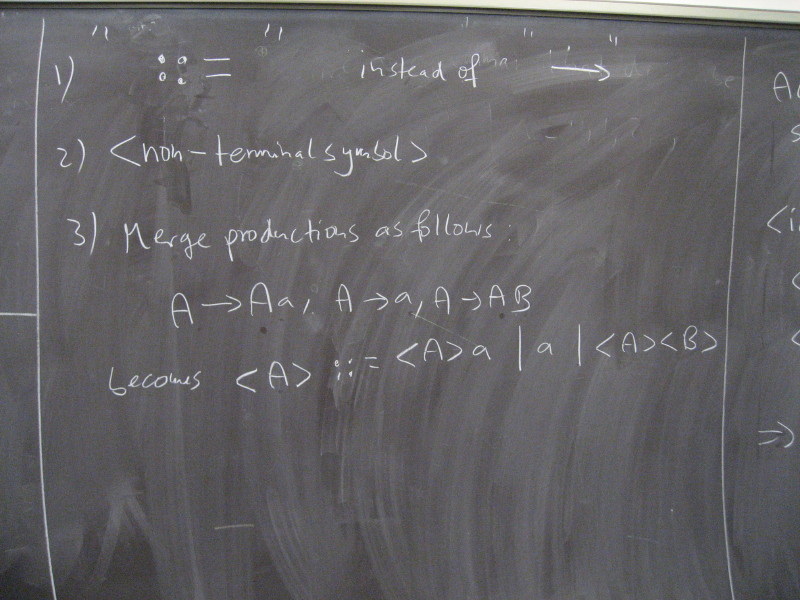 1) "::=" instead of "→"
2) <non-terminal symbol>
3) Merge productions as follows:
A → Aa, A → a, A → AB
becomes <A> ::= <A>a | a | <A><B>
<
<
⇒